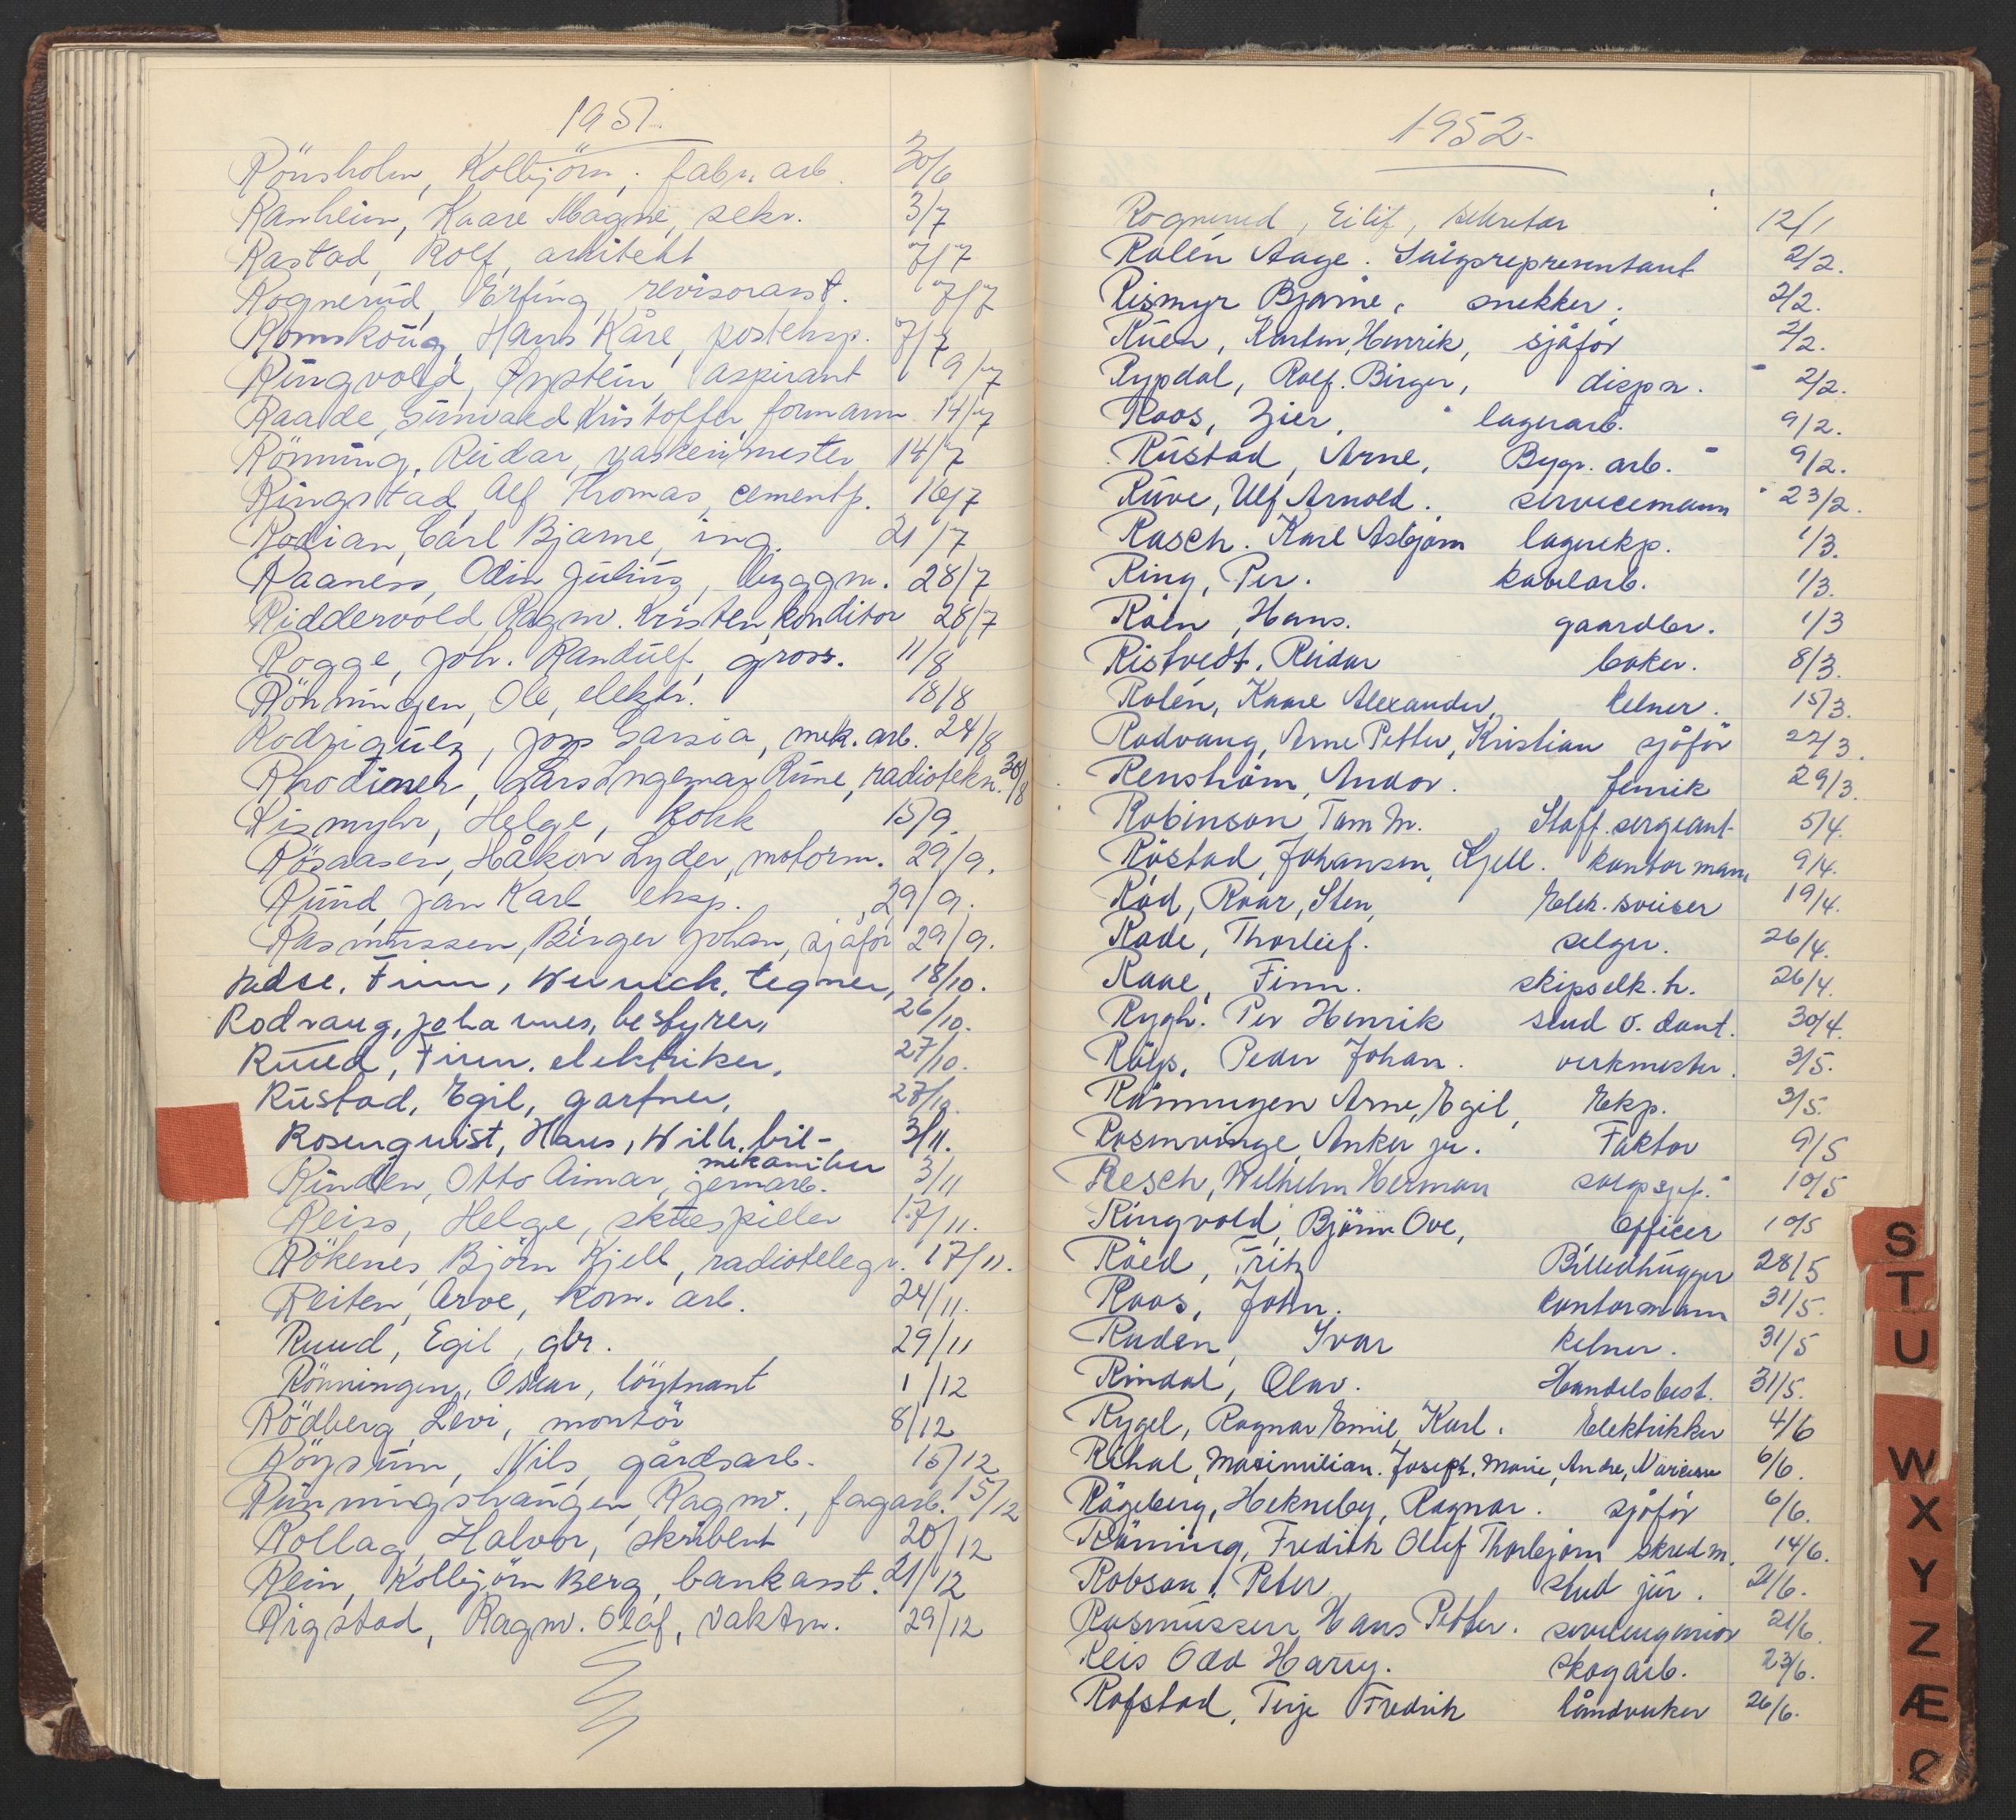 1951.
Rönsholm, Kolbjörn, fabr. arb. 30/6
Ranheim, Kaare Magne, sekr. 3/7
Rastad, Rolf, arkitekt 7/7
Rognerud, Erling, revisorasst. 7/7
Romskoug, Hans Kåre, posteksp. 7/7
Ringvold, Øystein, aspirant 9/7
Raade, Gunvald Kristoffer, formann 14/7
Rönning, Reidar, vaskerimester 14/7
Ringstad, Alf Thomas, cementf. 16/7
Rodian, Carl Bjarne, ing. 21/7
Raaness, Odin Julius, byggm. 28/7
Riddervold, Ragnv. Kristen, konditor 28/7
Rogge, Joh. Randulf, gross. 11/8
Rönningen, Ole, elektr. 18/8
Rodriguez, Garsia, mek. arb. 24/8
Rhodiner, Lars Ingemar Rune, radiotekn. 30/8
Rismyhr, Helge, kokk 15/9.
Rösaasen, Håkon Lyder, motorm. 29/9.
Rund, Jan Karl eksp. 29/9.
Rasmussen, Birger Johan, sjåför 29/9.
Finn, tegner, 18/10.
Rodvang, Johannes, bestyrer, 26/10.
Ruud, Finn, elektriker, 27/10.
Rustad, Egil, gartner, 27/10.
Rosenquist, Hans, Wilh. bil- 3/11.
mekaniker
Rinden, Otto Aimar, jernarb. 3/11
Reiss, Helge, skuespiller 17/11.
Rökenes, Björn Kjell, radiotelegr. 17/11.
Reiten, Arve, kom. arb. 24/11.
Ruud, Egil, gbr. 29/11
Rönningen, Oskar, löytnant 1/12
Rödberg, Levi, montör 8/12
Röysum, Nils, gårdsarb. 15/12
Ragnv., fagarb. 15/12
Rollag, Halvor, skribent 20/12
Rein, Kolbjörn Berg, bankasst. 21/12
Rigstad, Ragnv. Olaf, vaktm. 29/12
1952-
Rognerud, Eilif, sekretær 12/1
Rolén Aage. Salgsrepresentant 2/2.
Rismyr Bjarne, snekker. 2/2.
Ruen, Karsten, Henrik, sjåför 2/2.
Rypdal, Rolf. Birger, dispn. 2/2.
Roos, lagerarb. 9/2.
Rustad, Arne, Bygn. arb. 9/2.
Ruve, Ulf Arnold. servicemann 23/2.
Rasch. Karl Asbjørn lagerekp. 1/3.
Ring, Per. kabelarb. 1/3.
Roen, Hans. gaardbr. 1/3
Ristvedt, Reidar baker. 8/3.
Rolén, Kaare Alexander, kelner. 15/3.
Rodvang, Arne Petter, Kristian sjåför 22/3.
Renström, Andor. fenrik 29/3.
Robinson Tom M. Staff. sergeant 5/4.
Röstad, Johansen, Kjell. kontormann 9/4.
Rød, Roar, Sten, Elek. sveiser 19/4.
Rode, Thorleif. selger. 26/4.
Raae, Finn. skipselk. h. 26/4.
Rygh. Per Henrik stud o. dont. 30/4.
Peder Johan. verkmester. 3/5.
Rönningen Arne, Egil, Ekp. 3/5.
Rosenvinge, Anker jr. Faktor 9/5
Resch, Wilhelm Herman salgssjef. 10/5
Ringvold, Björn Ove, Officer 10/5
Röed, Fritz Billedhugger 28/5
Roos, John. kontormann 31/5.
Ruden, Ivar kelner. 31/5
Rindal, Olav. Handelsbest. 31/5.
Rygel, Ragnar Emil, Karl. Elektrikker 4/6
Maximilian. Joseph. Marie, Andre, Narcisse 6/6.
Rögeberg, Hekneby, Ragnar. sjåför 6/6.
Rönning, Fredrik Oluf Thorbjørn skredm. 14/6.
Robson, Peter stud jur. 21/6.
Rasmussen, Hans Petter. 21/6.
Reis Odd Harry. skogarb. 23/6.
Rofstad, Terje Fredrik håndverker 26/6.
S
T
U
W
X
Y
Z
Æ